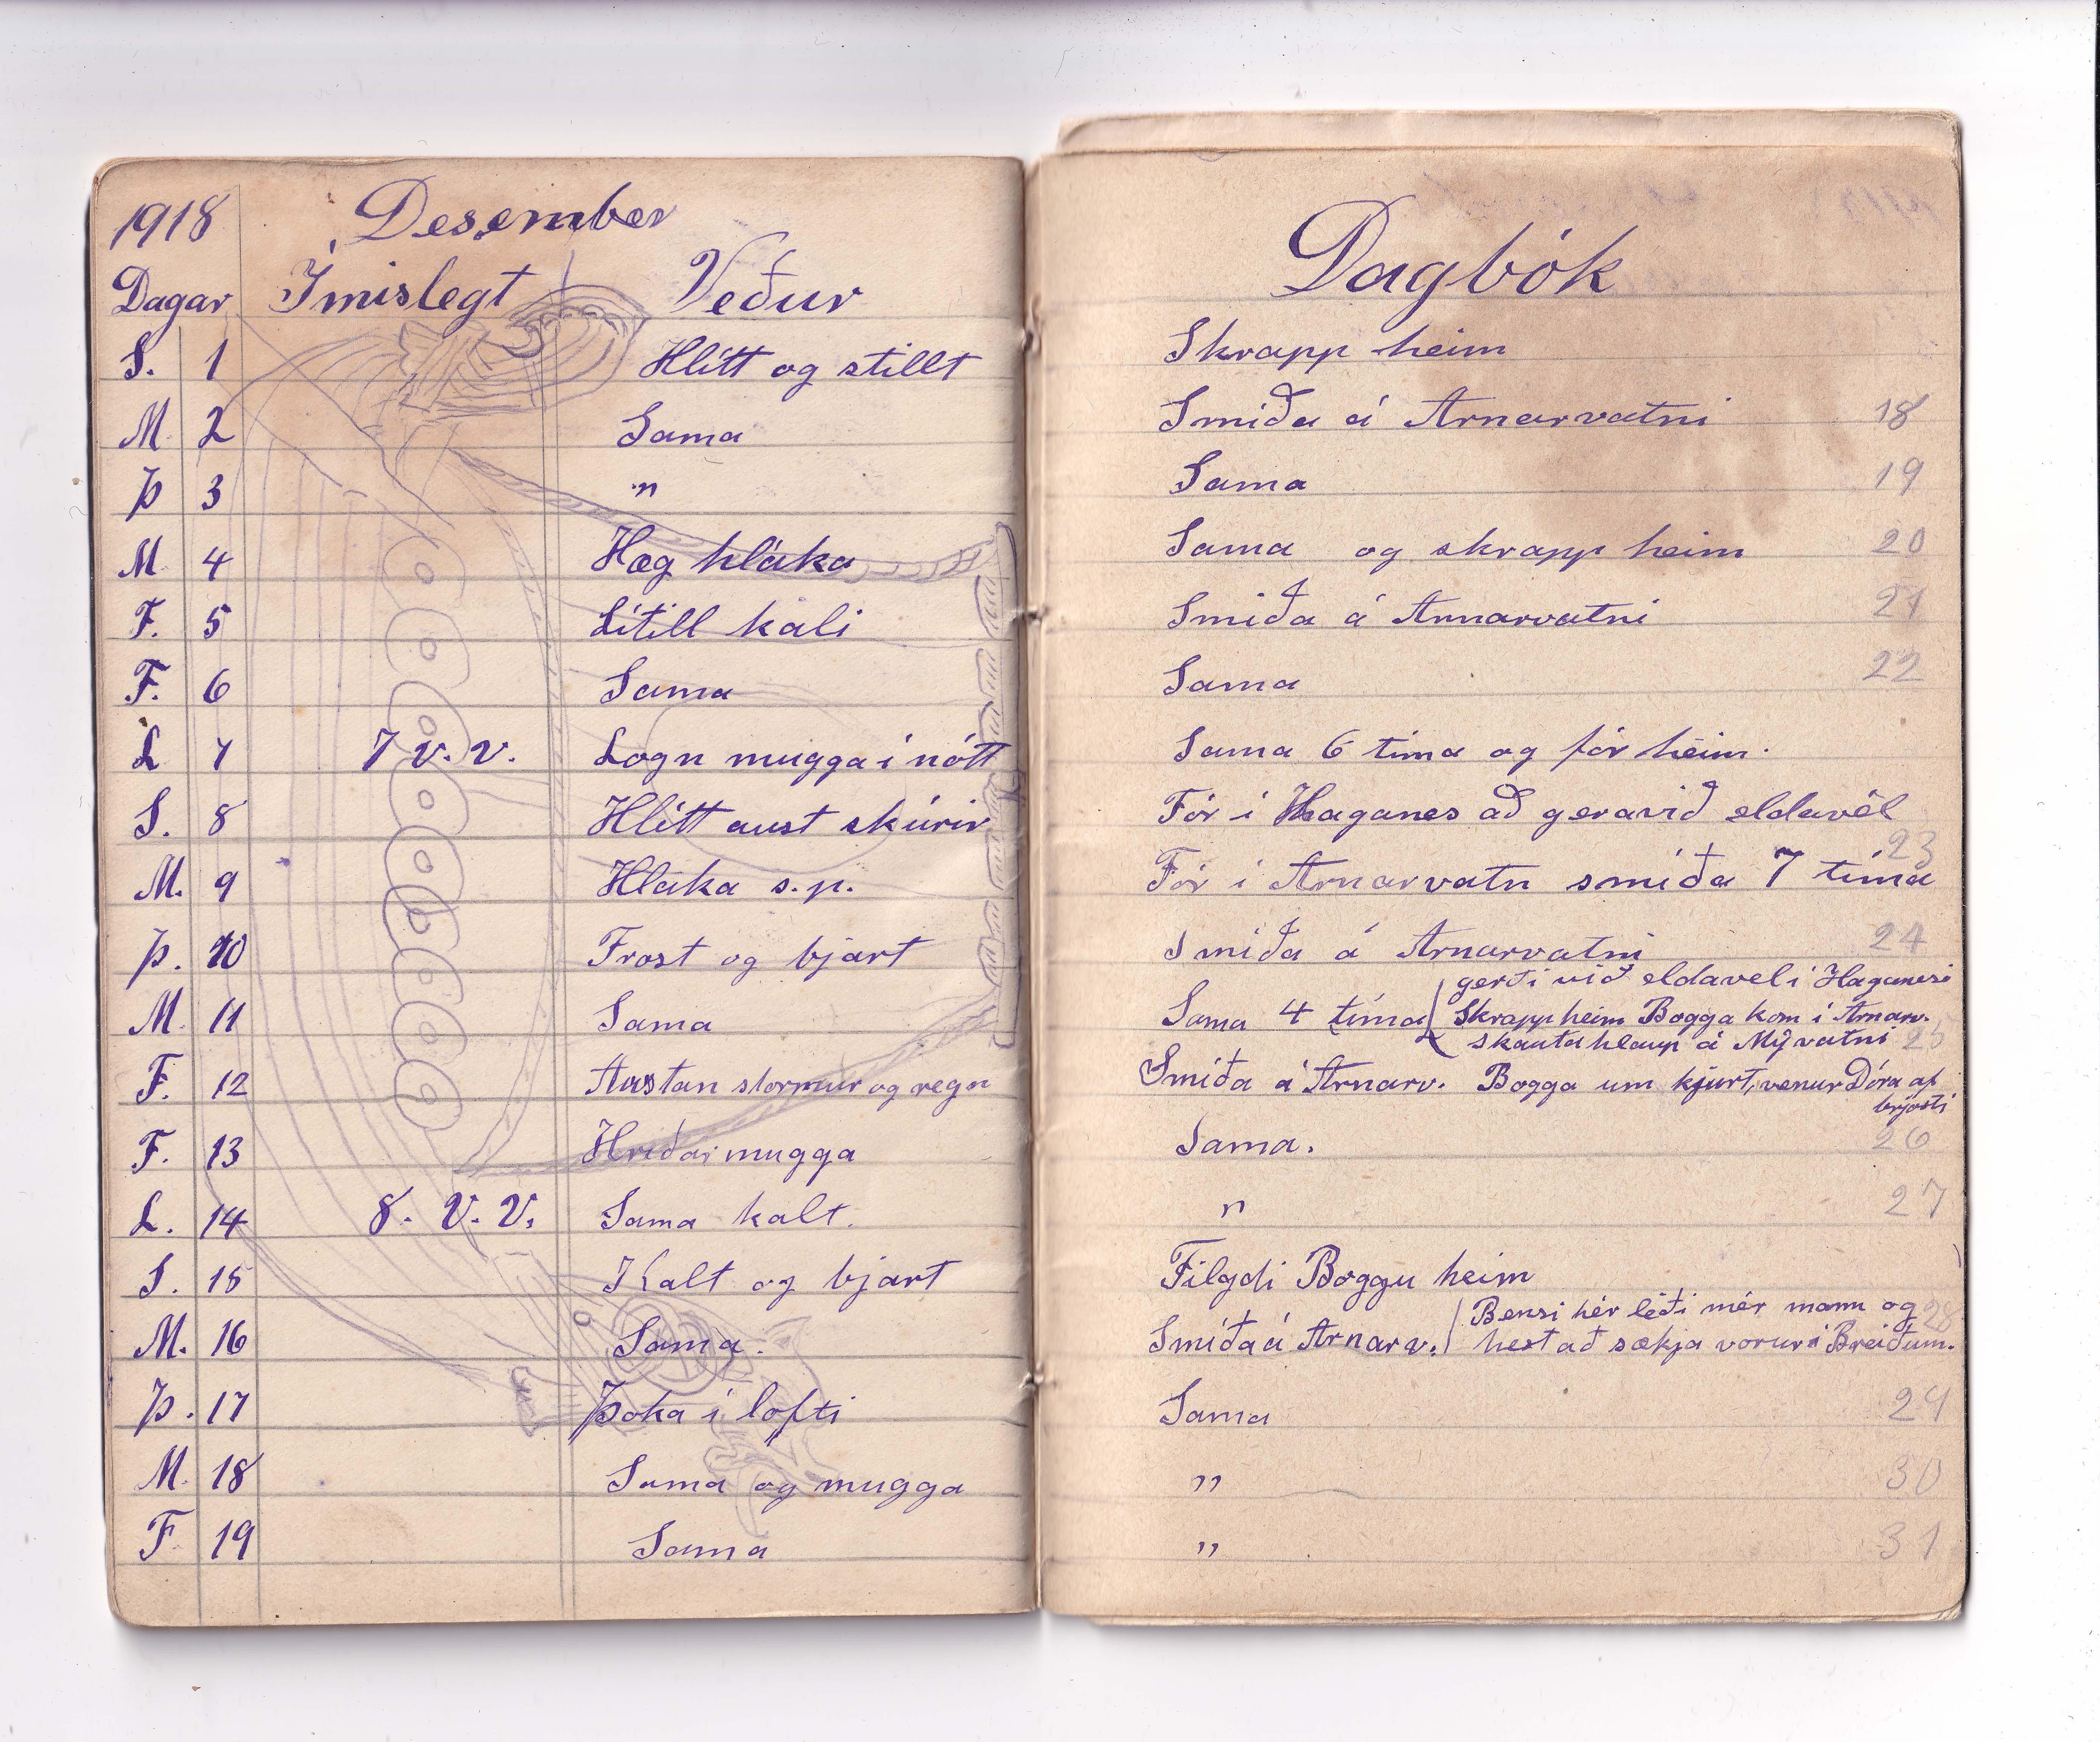 1918 Desember
Dagar Ímislegt Veður
S. 1 Hlítt og stillt
M 2 Sama
Þ 3 "
M 4 Hæg hláka
F. 5 Lítill kali
F. 6 Sama
L 7 7 v. v. Logn mugga í nótt
S. 8 Hlítt aust skúrir
M. 9 Hláka s.p.
Þ. 10 Frost og bjart
M. 11 Sama
F. 12 Austan stormur og regn
F. 13 Hríðar mugga
L. 14 8. V. V. Sama kalt.
S. 15 Kalt og bjart
M. 16 Sama.
Þ. 17 Þoka í lofti
M. 18 Sama og mugga
F 19 Sama
Dagbók
Skrapp heim
Smíða á Arnarvatni 18
Sama 19
Sama og skrapp heim 20
Smíða á Arnarvatni 21
Sama 22
Sama 6 tíma og fór heim.
Fór í Haganes að geravið eldavél
23
Fór í Arnarvatn smíða 7 tíma
Smíða á Arnarvatni 24
gerti við eldavel í Haganesi
Sama 4 tíma Skrapp heim Bogga kom í Arnarv.
skautahlaup á Mývatni 25
Smíða á Arnarv. Bogga um kjurt, venur Dóra af
brjósti
Sama. 26
" 27
Filgdi Boggu heim
Bensi hér léði mér mann og 28
Smíða á Arnarv. hest að sækja vorur í Breiðum.
Sama 29
" 30
" 31